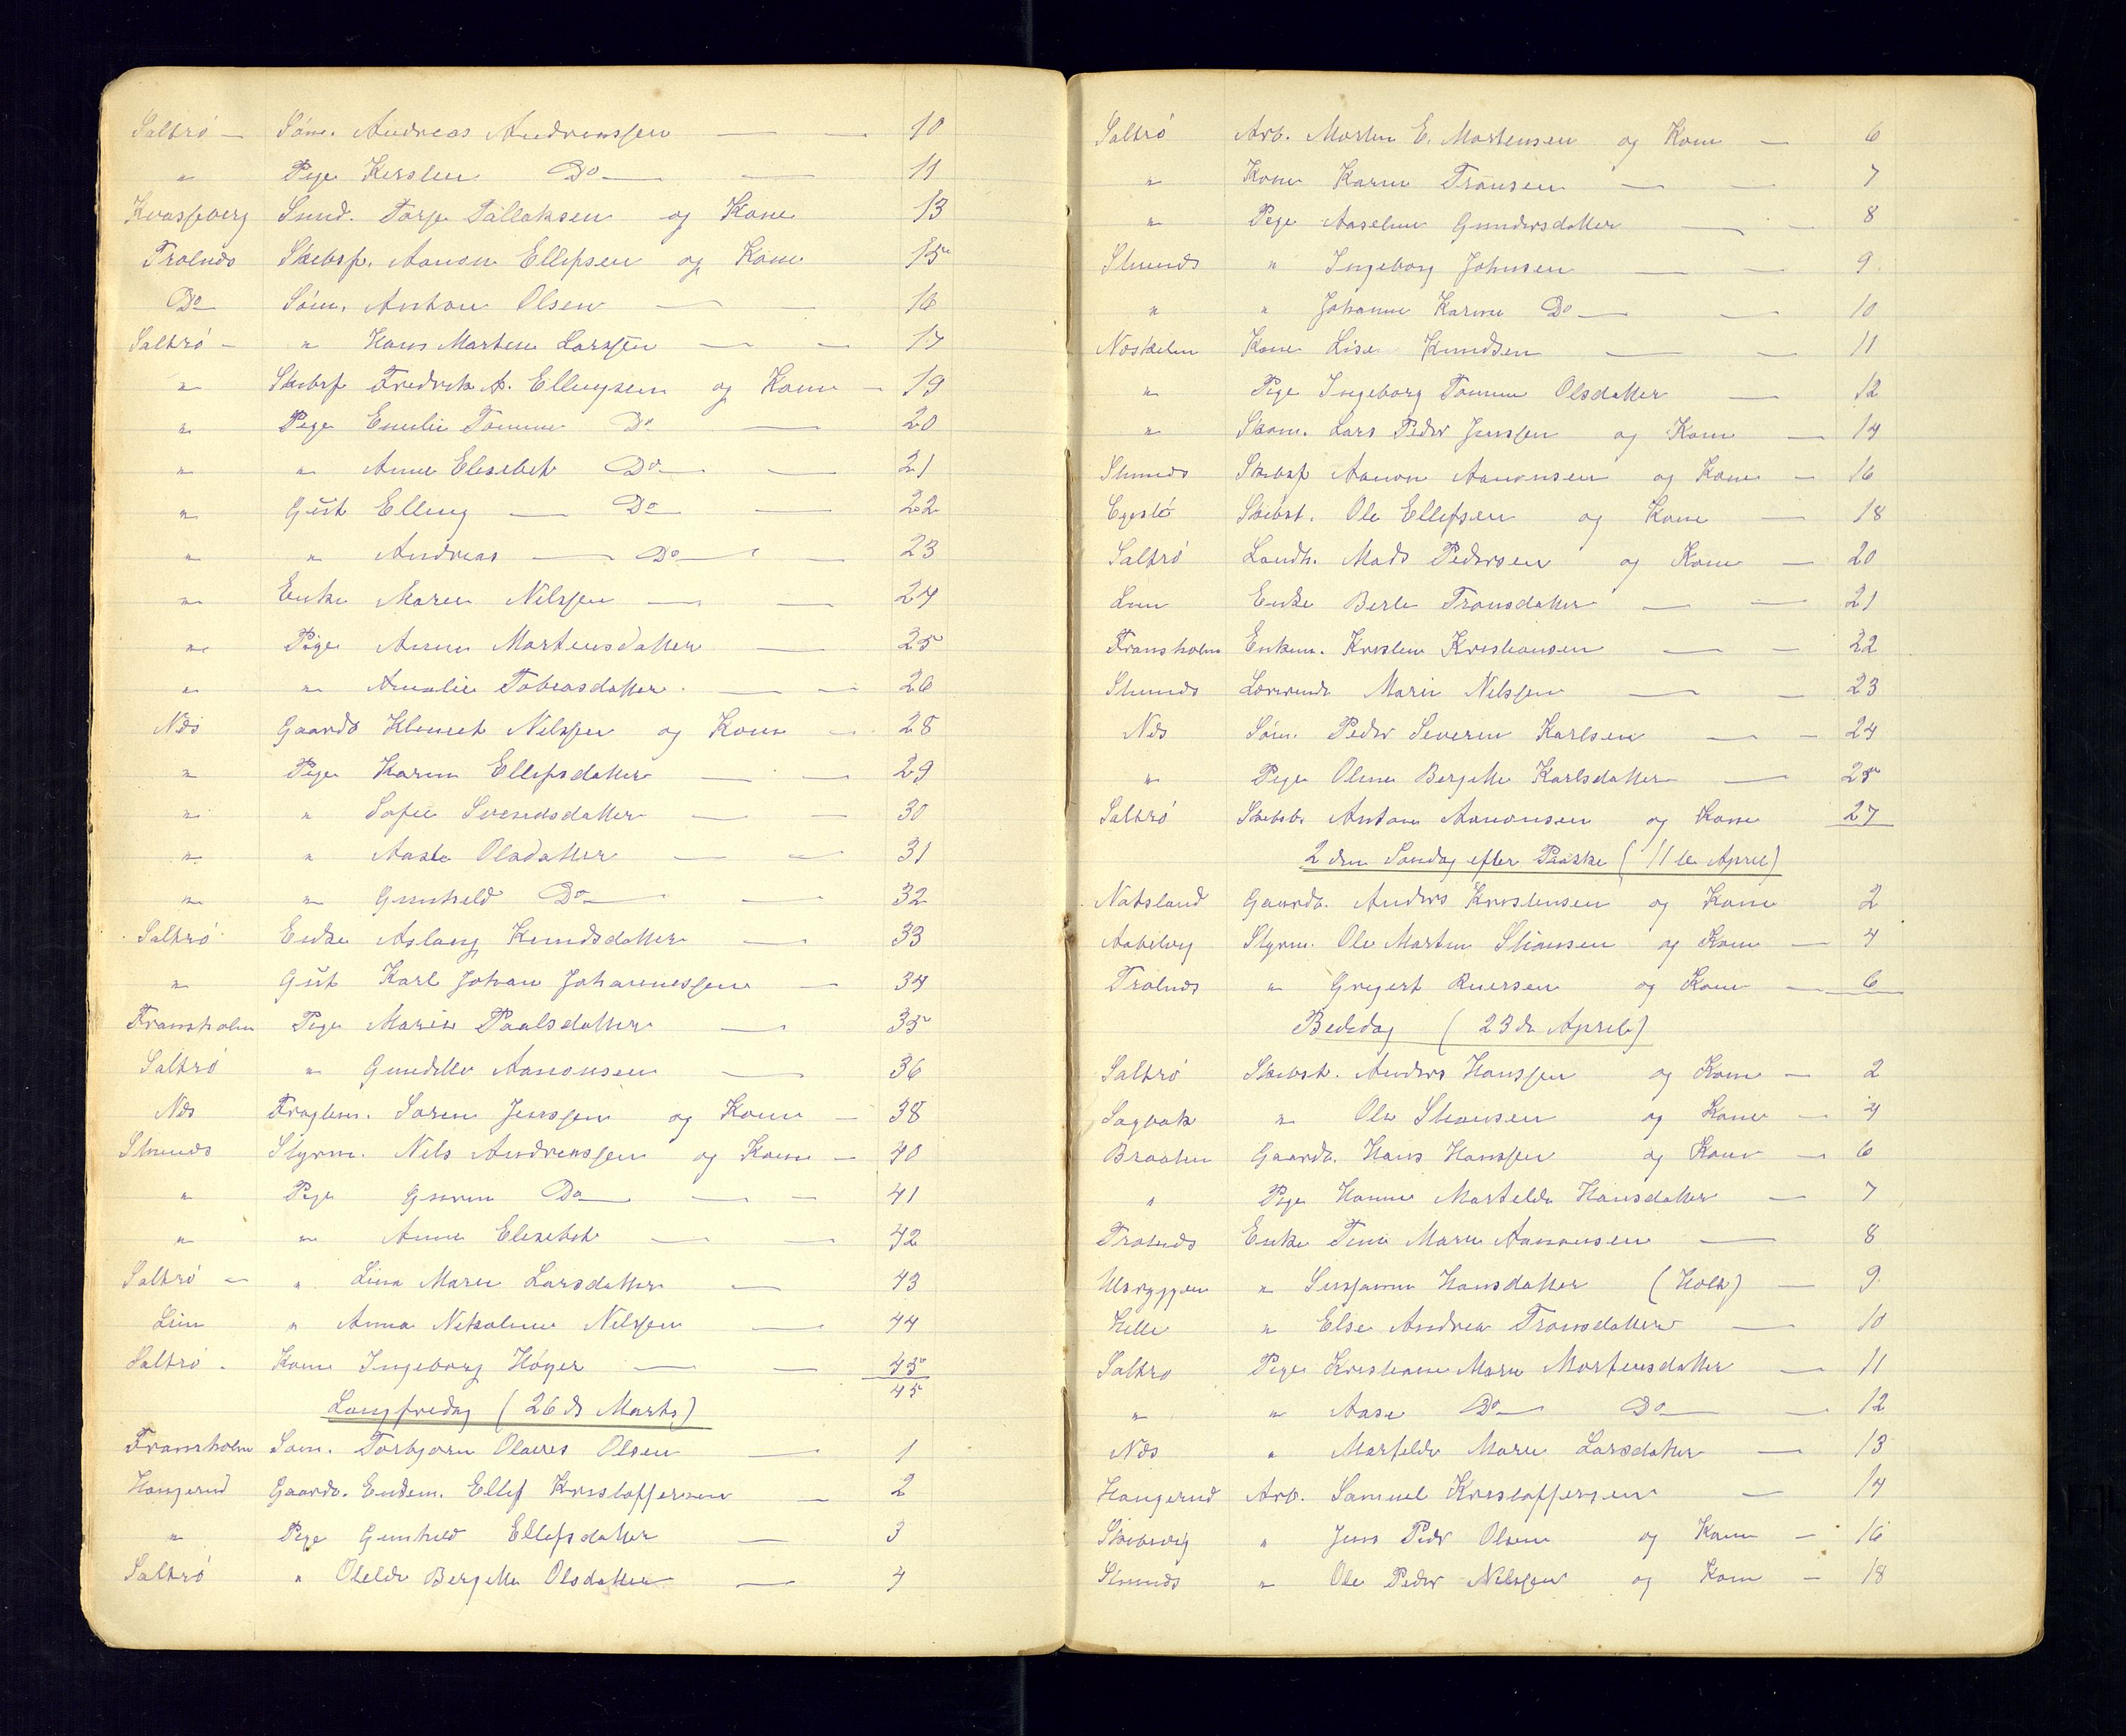 Saltrö — Söm. Andreas Andreassen — — 10
" Pige Kirsten Do — — 11
Kvasberg Smed. Tarje Tallaksen og Kone 13
Tralnds Skibsf. Aanon Ellefsen og Kone 15
Do Söm. Anton Olsen — — 16
Saltrö — " Hans Martin Larssen — — 17
" Skibsf Fredrik A. Ellingsen og Kone — 19
" Pige Emilie Tomine Do — 20
" " Anne Elisebet Do — — 21
" Gut Elling — Do — — 22
" " Andreas — Do — — 23
" Enke Maren Nilssen — — 24
" Pige Anne Martensdatter — 25
" " Amalie Tobiasdatter. — — 26
Næs Gaardb Klemet Nilssen og Kone — 28
" Pige Karen Ellefsdatter — — 29
" " Sofie Svendsdatter — — 30
" " Aaste Olsdatter — — 31
" " Gunhild Do — — 32
Saltrö Enke Aslaug Knudsdatter — 33
" Gut Karl Johan Johannessen — 34
Fransholm Pige Marie Paalsdatter — 35
Saltrö " Gundille Aanonsen — 36
Næs Fragtem. Sören Jenssen og Kone — 38
Stunds Styrm. Nils Andreassen og Kone — 40
" Pige Do — — — 41
" " Anne Elisebet — — 42
Saltrö — " Lina Marie Larsdatter — 43
Lien " Anna Nikoline Nilssen — 44
Saltrö — Kone Ingeborg Höyer — — 45
45
Langfredag (26de Marts)
Fransholm Söm. Torbjörn Olaves Olsen — 1
Haugerud Gaardb. Enkem. Ellef Kristoffersen — 2
" Pige Gunhild Ellefsdatter — 3
Saltrö " Olelde Bergitte Olsdatter — 4
Saltrö Arb. Morten E. Mortensen og Kone — 6
" Kone Karen Transen — — 7
" Pige Aaseline Gundersdatter — — 8
Stunds " Ingeborg Johnsen — — 9
" " Johanne Karine Do — — 10
Næskilen Kone Lise Knudsen — — 11
" Pige Ingeborg Tomine Olsdatter — 12
" Skom. Lars Peder Jenssen og Kone — 14
Stunds Skibsf Aanon Aanonsen og Kone — 16
Skibst. Ole Ellefsen og Kone — 18
Saltrö Landh. Mads Pedersen og Kone — 20
Enke Berte Transdatter — — 21
Fransholm Enkem. Kristen Kristiansen — — 22
Stunds Lærerinde Marie Nilssen — — 23
Næs Söm. Peder Severin Karlsen — — 24
" Pige Oline Bergitte Karlsdatter — 25
Saltrö Skibsb Anton Aanonsen og Kone 27
2den Söndag efter Paaske (11te April)
Natsland Gaardb. Anders Kristensen og Kone 2
Aabelvig Styrm. Ole Martin Stiansen og Kone — 4
Tralnds " Gregert og Kone — 6
Bededag (23de April)
Saltrö Skibst. Anders Hanssen og Kone — 2
Sagbak " Ole Stiansen og Kone — 4
Braaten Gaardb. Hans Hanssen og Kone — 6
" Pige Hanne Martilde Hansdatter — 7
Tralnds Enke Tine Marie Aanonsen — 8
" Susanne Hansdatter (Holt) — 9
Hille " Else Andrea Transdatter — 10
Saltrö Pige Kristiane Marie Mortensdatter — 11
" " Aase Do — Do — — 12
Næs " Martilde Marie Larsdatter — 13
Haugerud Arb. Samuel Kristoffersen — 14
Skibsvig " Jens Peder Olsen og Kone — 16
Stunds " Ole Peder Nilssen og Kone — 18